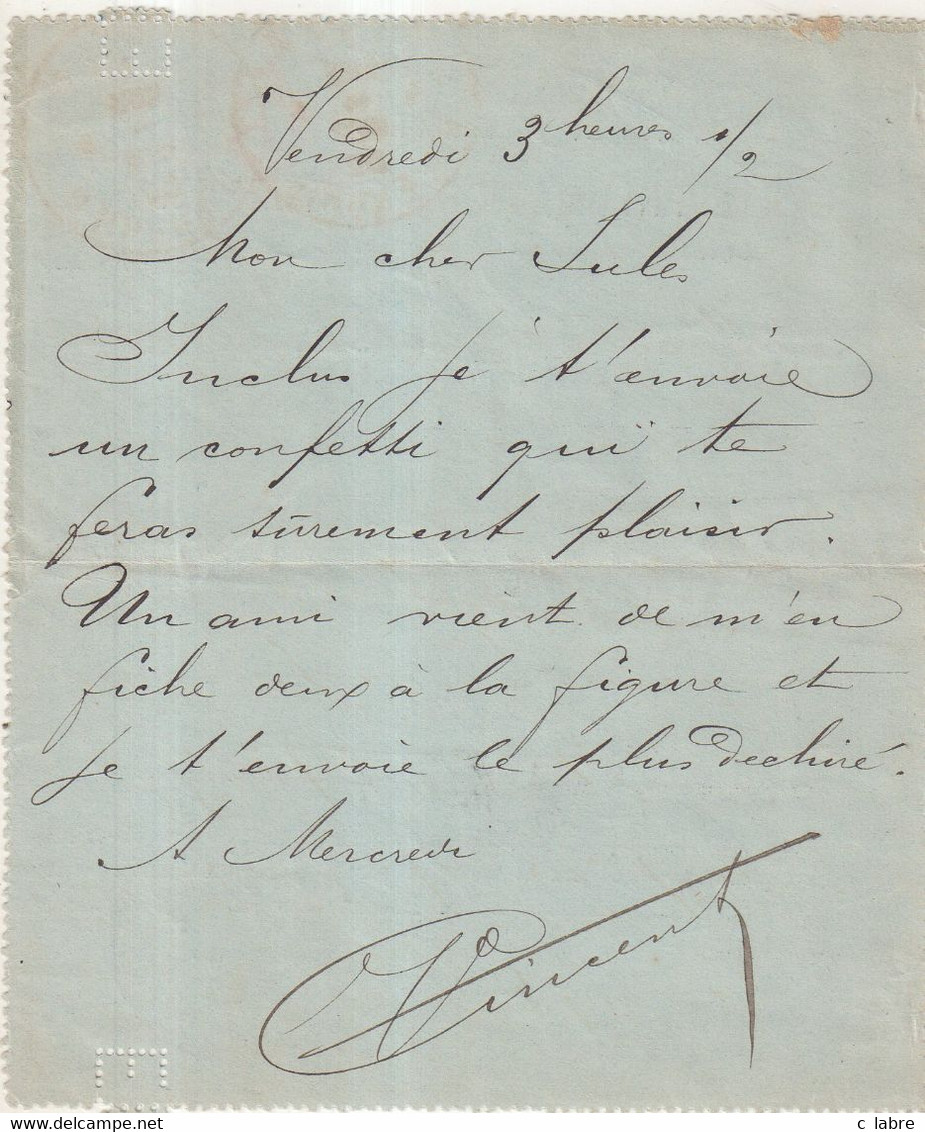 Vendredi 3 heures 1/2
Mon cher Jules
Inclus je t'envoie
un confetti qui te
feras sûrement plaisir.
Un ami vient de m'en
fiche deux à la figure et
je t'envoie le plus dechiré.
A Mercredi
Vincent
delcampe.net
c labre